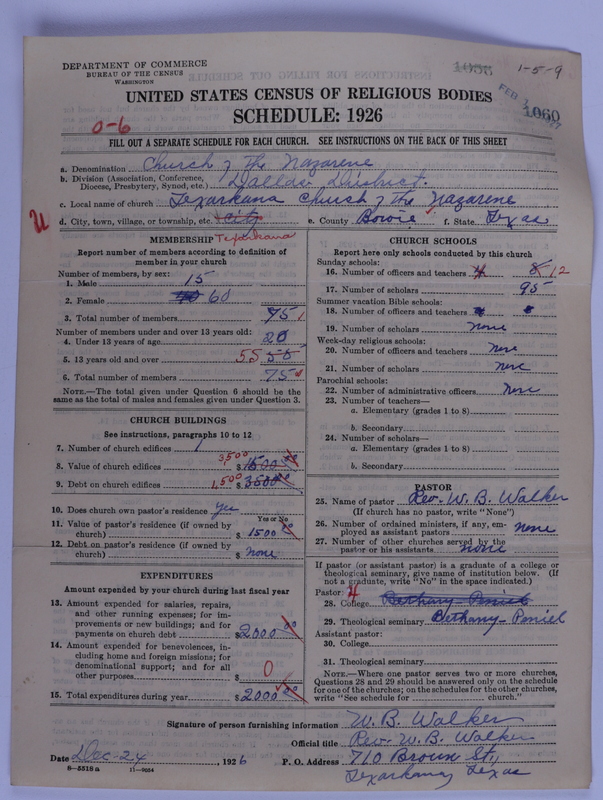 DEPARTMENT OF COMMERCE
BUREAU OF THE CENSUS
WASHINGTON
1-5-9
1060
UNITED STATES CENSUS OF RELIGIOUS BODIES
SCHEDULE: 1926
0-6
FILL OUT A SEPARATE SCHEDULE FOR EACH CHURCH. SEE INSTRUCTIONS ON THE BACK OF THIS SHEET
a. Denomination Church of the Nazarene
b. Division (Association, Conference, Diocese, Presbytery, Synod, etc.) Dallas District.
c. Local name of church Texarkana Church of the Nazarene
d. City, town, village, or township, etc. City e. County Bowie f. State Texas
U
MEMBERSHIP Texarkana
Report number of members according to definition of member in your church
Number of members, by sex:
1. Male 15
2. Female 60
3. Total number of members 75
Number of members under and over 13 years old:
4. Under 13 years of age 20
5. 13 years old and over 55 55
6. Total number of members 75
NOTE.—The total given under Question 6 should be the same as the total of males and females given under Question 3.
CHURCH BUILDINGS
See instructions, paragraphs 10 to 12
7. Number of church edifices 1
3,500
8. Value of church edifices $ 1500 00
1,500
9. Debt on church edifices $ 3500 00
10. Does church own pastor's residence? yes
Yes or No
11. Value of pastor's residence (if owned by church) $ 1500 00
12. Debt on pastor's residence (if owned by church) $ none
EXPENDITURES
Amount expended by your church during last fiscal year
13. Amount expended for salaries, repairs, and other running expenses; for improvements or new buildings; and for payments on church debt $ 2000 00
14. Amount expended for benevolences, including home and foreign missions; for denominational support; and for all other purposes $ 0
15. Total expenditures during year $ 2000 00
CHURCH SCHOOLS
Report here only schools conducted by this church
Sunday schools:
16. Number of officers and teachers 8 12
17. Number of scholars 95
Summer vacation Bible schools:
18. Number of officers and teachers
19. Number of scholars none
Week-day religious schools:
20. Number of officers and teachers none
21. Number of scholars none
Parochial schools:
22. Number of administrative officers none
23. Number of teachers—
a. Elementary (grades 1 to 8)
b. Secondary
24. Number of scholars—
a. Elementary (grades 1 to 8)
b. Secondary
PASTOR
25. Name of pastor Rev. W. B. Walker
(If church has no pastor, write "None")
26. Number of ordained ministers, if any, employed as assistant pastors none
27. Number of other churches served by the pastor or his assistants none
If pastor (or assistant pastor) is a graduate of a college or theological seminary, give name of institution below. (If not a graduate, write "No" in the space indicated.)
Pastor:
28. College Bethany-Peniel
29. Theological seminary Bethany-Peniel
Assistant pastor:
30. College
31. Theological seminary
NOTE.—Where one pastor serves two or more churches, Questions 28 and 29 should be answered only on the schedule for one of the churches; on the schedules for the other churches, write "See schedule for church."
Signature of person furnishing information W. B. Walker
Official title Rev. W. B. Walker
Date Dec-24, 1926 P. O. Address 710 Broun St,
Texarkana, Texas
8—5518 a 11—9054